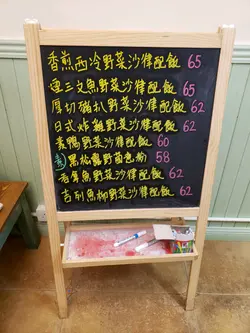 香煎西冷野菜沙律配飯 65
三文魚野菜沙律配飯 65
厚切豬扒野菜沙律配飯 62
日式炸雞野菜沙律配飯 62
鴨野菜沙律配飯 60
素 黑松露野菌 58
魚野菜沙律配飯 62
吉列魚柳野菜沙律配飯 62